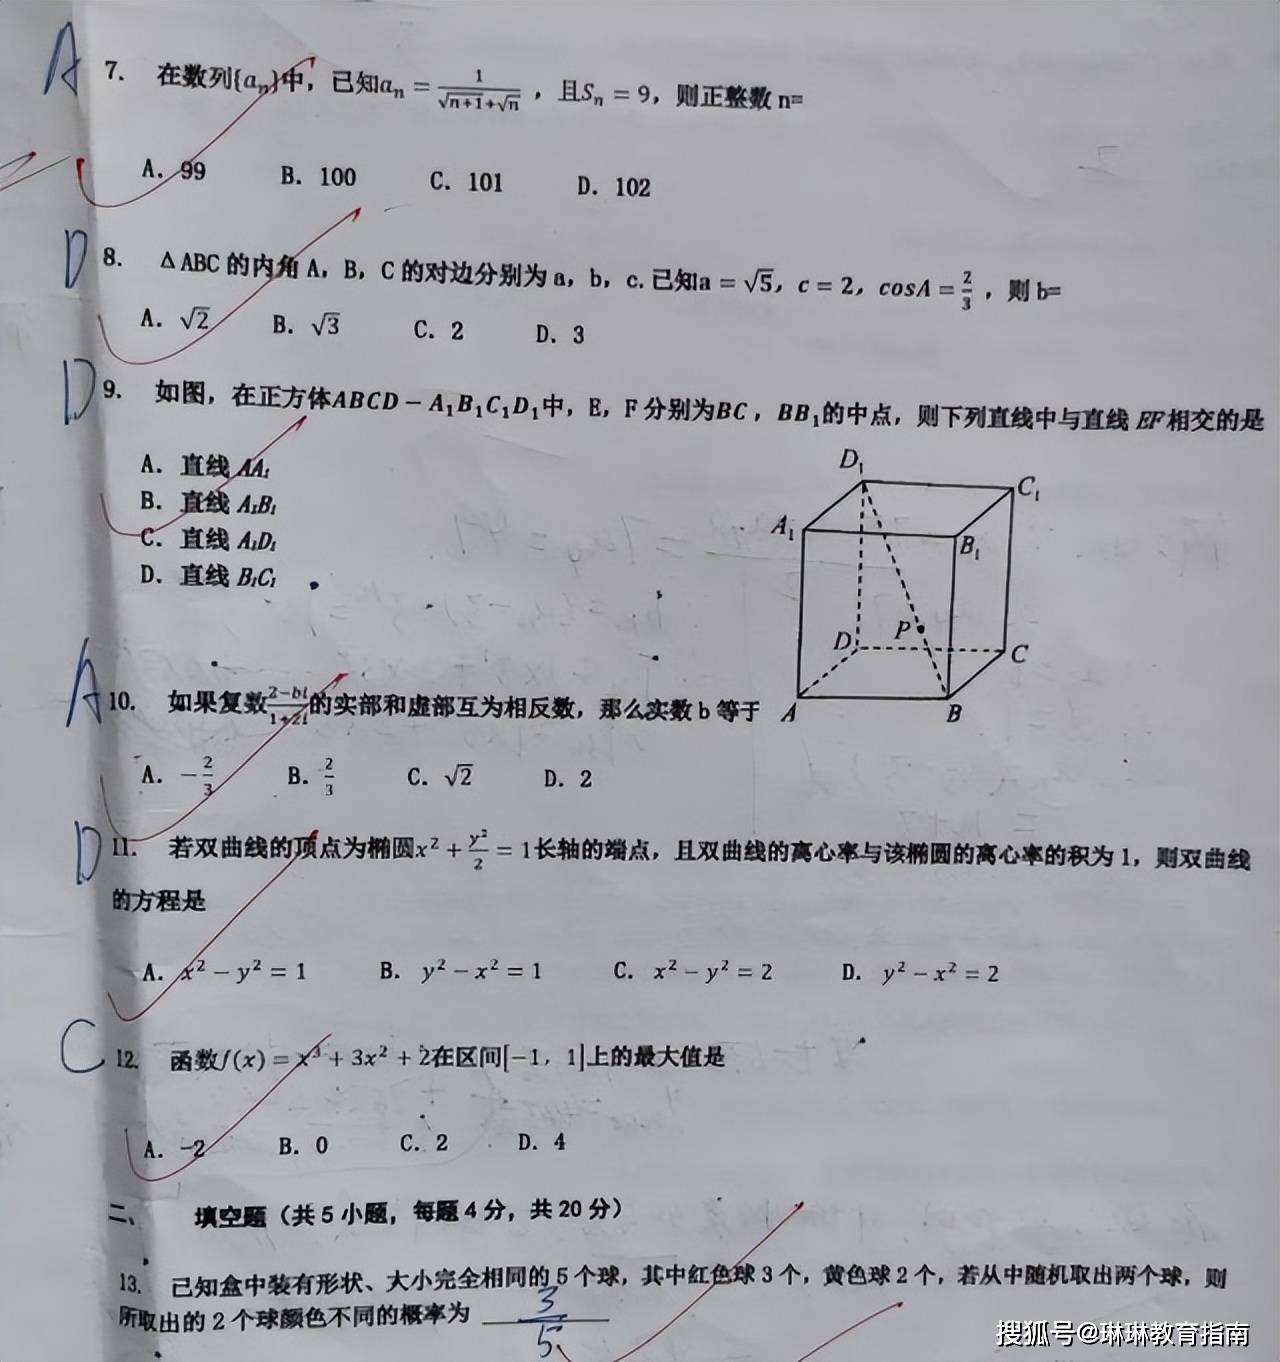 A
7. 在数列{aₙ}中，已知aₙ = 1/(√(n+1)+√n)，且Sₙ = 9，则正整数 n=
A. 99 B. 100 C. 101 D. 102
D
8. △ABC 的内角 A，B，C 的对边分别为 a，b，c.已知a = √5，c = 2，cosA = 2/3，则 b=
A. √2 B. √3 C. 2 D. 3
D
9. 如图，在正方体ABCD − A₁B₁C₁D₁中，E，F 分别为BC，BB₁的中点，则下列直线中与直线 EF 相交的是
A. 直线 AA₁
B. 直线 A₁B₁
C. 直线 A₁D₁
D. 直线 B₁C₁
D₁
C₁
A₁
B₁
P
D
C
A
B
A
10. 如果复数(2−bi)/(1+2i)的实部和虚部互为相反数，那么实数 b 等于
A. −2/3 B. 2/3 C. √2 D. 2
D
11. 若双曲线的顶点为椭圆x² + y²/2 = 1长轴的端点，且双曲线的离心率与该椭圆的离心率的积为 1，则双曲线
的方程是
A. x² − y² = 1 B. y² − x² = 1 C. x² − y² = 2 D. y² − x² = 2
C
12. 函数f(x) = x³ + 3x² + 2在区间[−1，1]上的最大值是
A. −2 B. 0 C. 2 D. 4
二、 填空题（共 5 小题，每题 4 分，共 20 分）
13. 已知盒中装有形状、大小完全相同的 5 个球，其中红色球 3 个，黄色球 2 个，若从中随机取出两个球，则
所取出的 2 个球颜色不同的概率为 3/5
搜狐号@琳琳教育指南